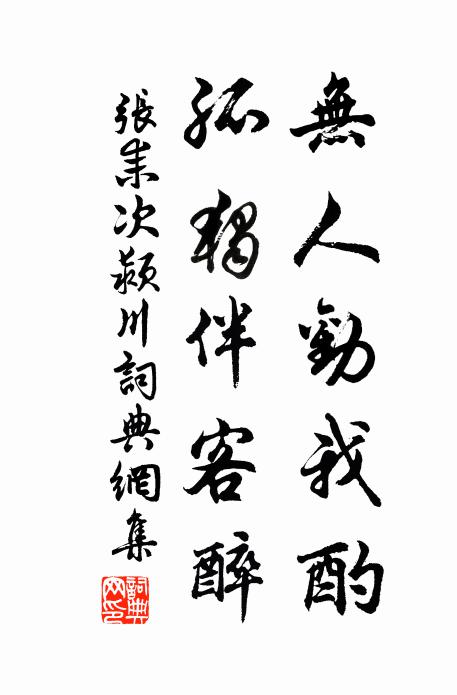 無人勸我酌
孤獨伴客醉
張耒次潁川詞典網集
詞典網印